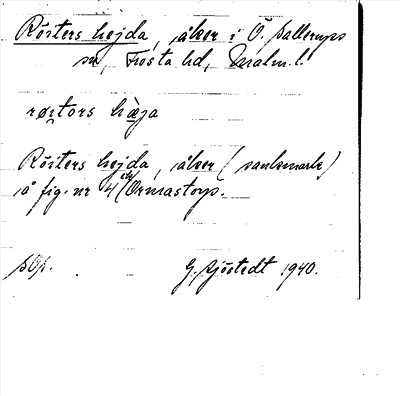 Rösters hejda, åker i Ö. Sallerups
sn, Frosta hd, Malm. l.
røstors hæja
Rösters hejda, åker (sankmark)
å fig. nr 4 Ormastorp.
G. Sjöstedt 1940.